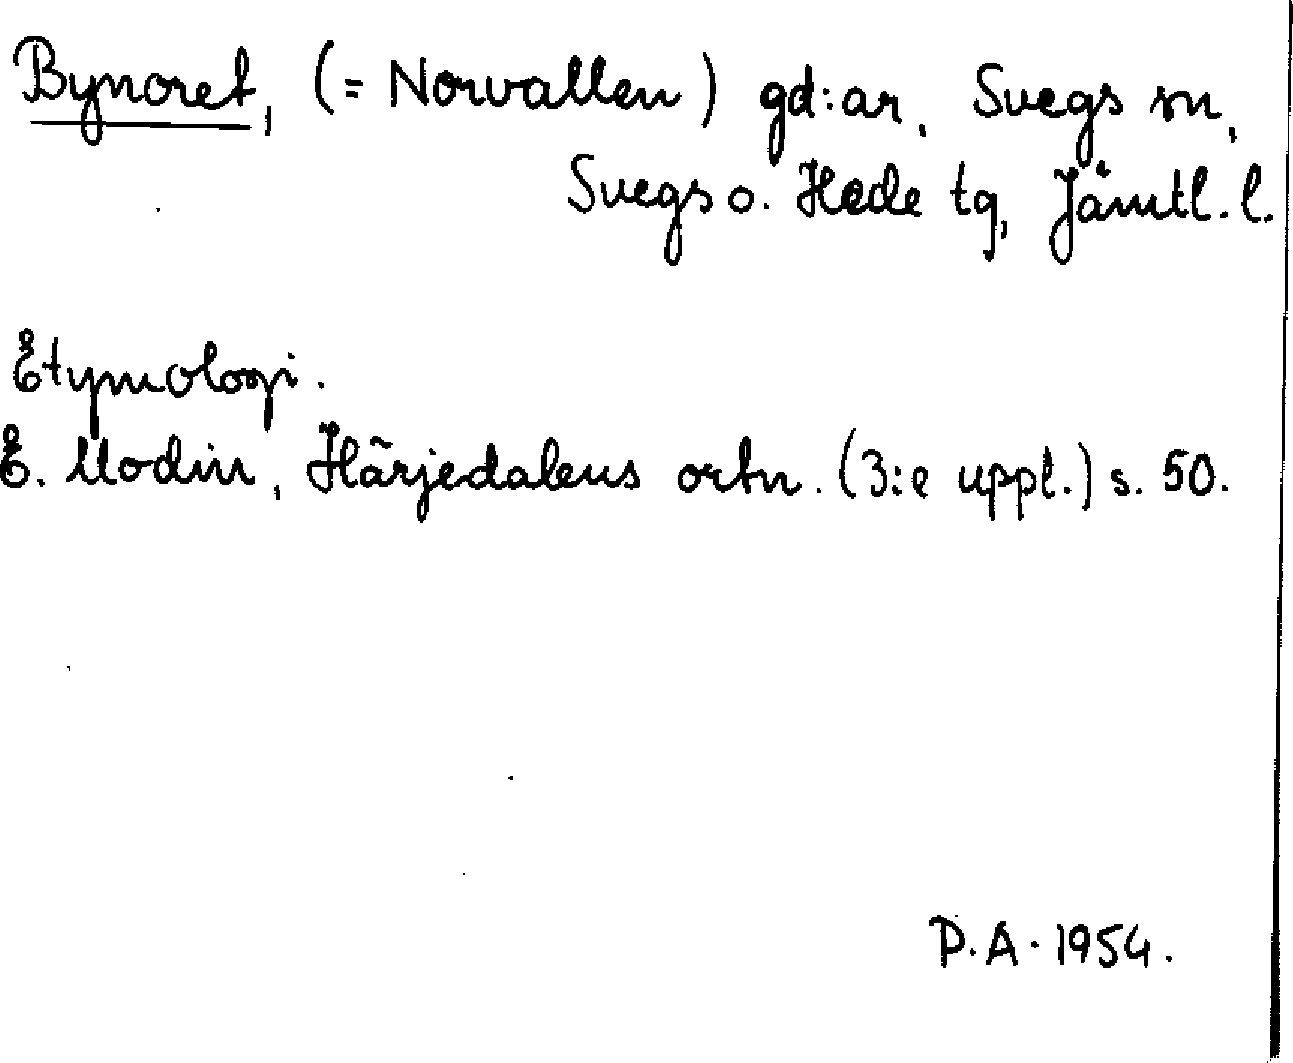 Bynoret, (= Norvallen) gd:ar, Svegs sn,
Svegs o. Hede tg, Jämtl. l.
Etymologi.
E. Modin, Härjedalens ortn. (3:e uppl.) s. 50.
D.A. 1954.